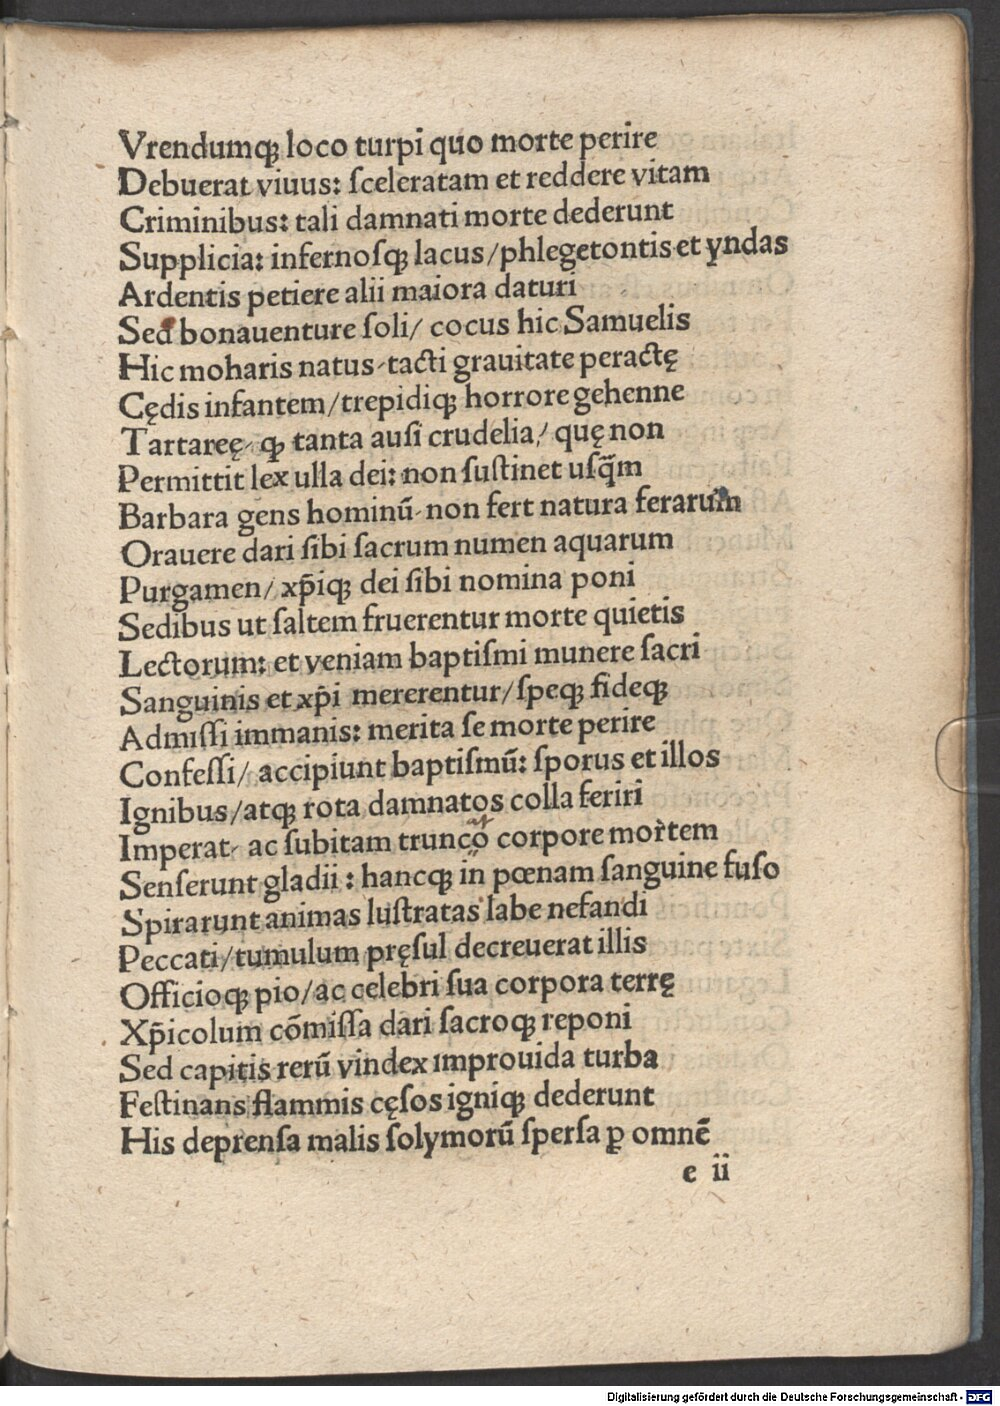 Vrendumqꝫ loco turpi quo morte perire
Debuerat viuus: ſceleratam et reddere vitam
Criminibus: tali damnati morte dederunt
Supplicia: infernoſqꝫ lacus/phlegetontis et yndas
Ardentis petiere alii maiora daturi
Sed bonauenture ſoli/ cocus hic Samuelis
Hic moharis natus ⸗ tacti grauitate peractę
Cędis infantem/trepidiqꝫ horrore gehenne
Tartareę ⸗ ꝙ tanta auſi crudelia/ quę non
Permittit lex ulla dei: non ſuſtinet uſq̃m
Barbara gens hominū ⸗ non fert natura ferarum
Orauere dari ſibi ſacrum numen aquarum
Purgamen/ xp̄iqꝫ dei ſibi nomina poni
Sedibus ut ſaltem fruerentur morte quietis
Lectorum: et veniam baptiſmi munere ſacri
Sanguinis et xp̄i mererentur/ ſpeqꝫ fideqꝫ
Admiſſi immanis: merita ſe morte perire
Confeſſi/ accipiunt baptiſmū: ſporus et illos
Ignibus/atqꝫ rota damnatos colla feriri
Imperat ⸗ ac ſubitam trunco corpore mortem
Senſerunt gladii : hancqꝫ in pœnam ſanguine fuſo
Spirarunt animas luſtratas labe nefandi
Peccati/tumulum pręſul decreuerat illis
Officioqꝫ pio/ac celebri ſua corpora terrę
Xp̄icolum cōmiſſa dari ſacroqꝫ reponi
Sed capitis rerū vindex improuida turba
Feſtinans flammis cęſos igniqꝫ dederunt
His deprenſa malis ſolymorū ſperſa ꝑ omnē
e ii
Digitalisierung gefördert durch die Deutsche Forschungsgemeinschaft - DFG